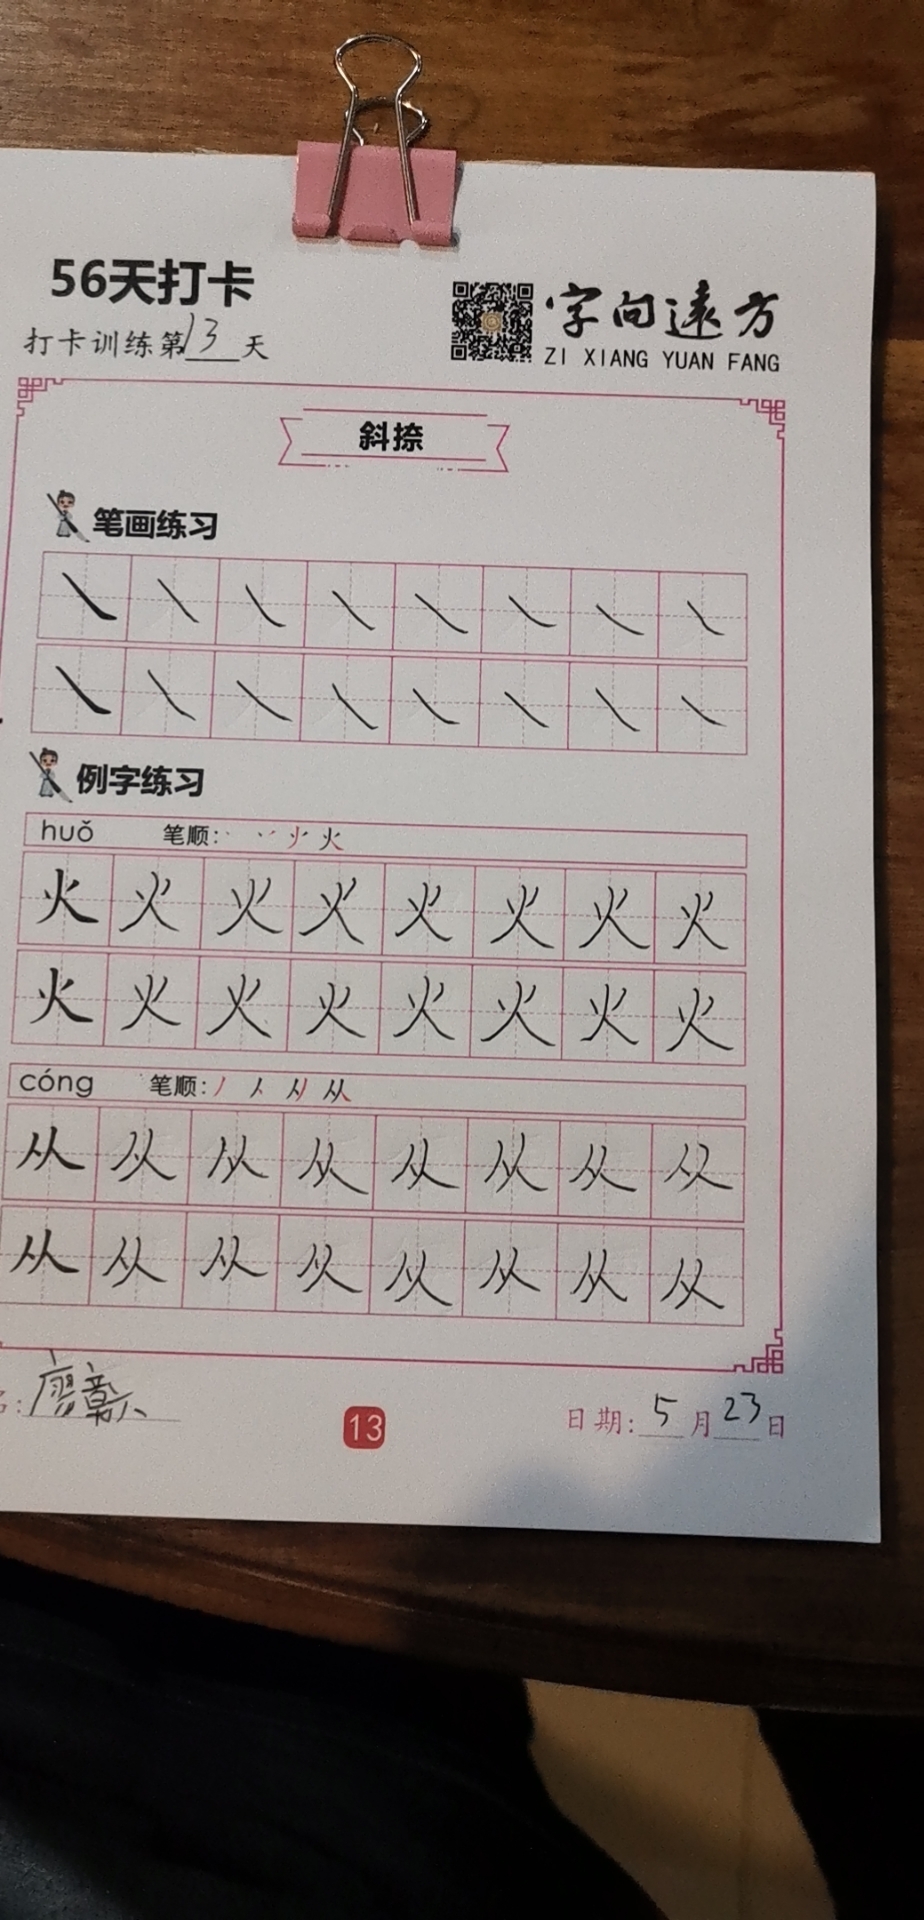 56天打卡
打卡训练第13天
字向遠方
ZI XIANG YUAN FANG
斜捺
笔画练习
㇏ ㇏ ㇏ ㇏ ㇏ ㇏ ㇏ ㇏
㇏ ㇏ ㇏ ㇏ ㇏ ㇏ ㇏ ㇏
例字练习
huǒ 笔顺:
火 火 火 火 火 火 火 火
火 火 火 火 火 火 火 火
cóng 笔顺:
从 从 从 从 从 从 从 从
从 从 从 从 从 从 从 从
13
日期: 5月23日